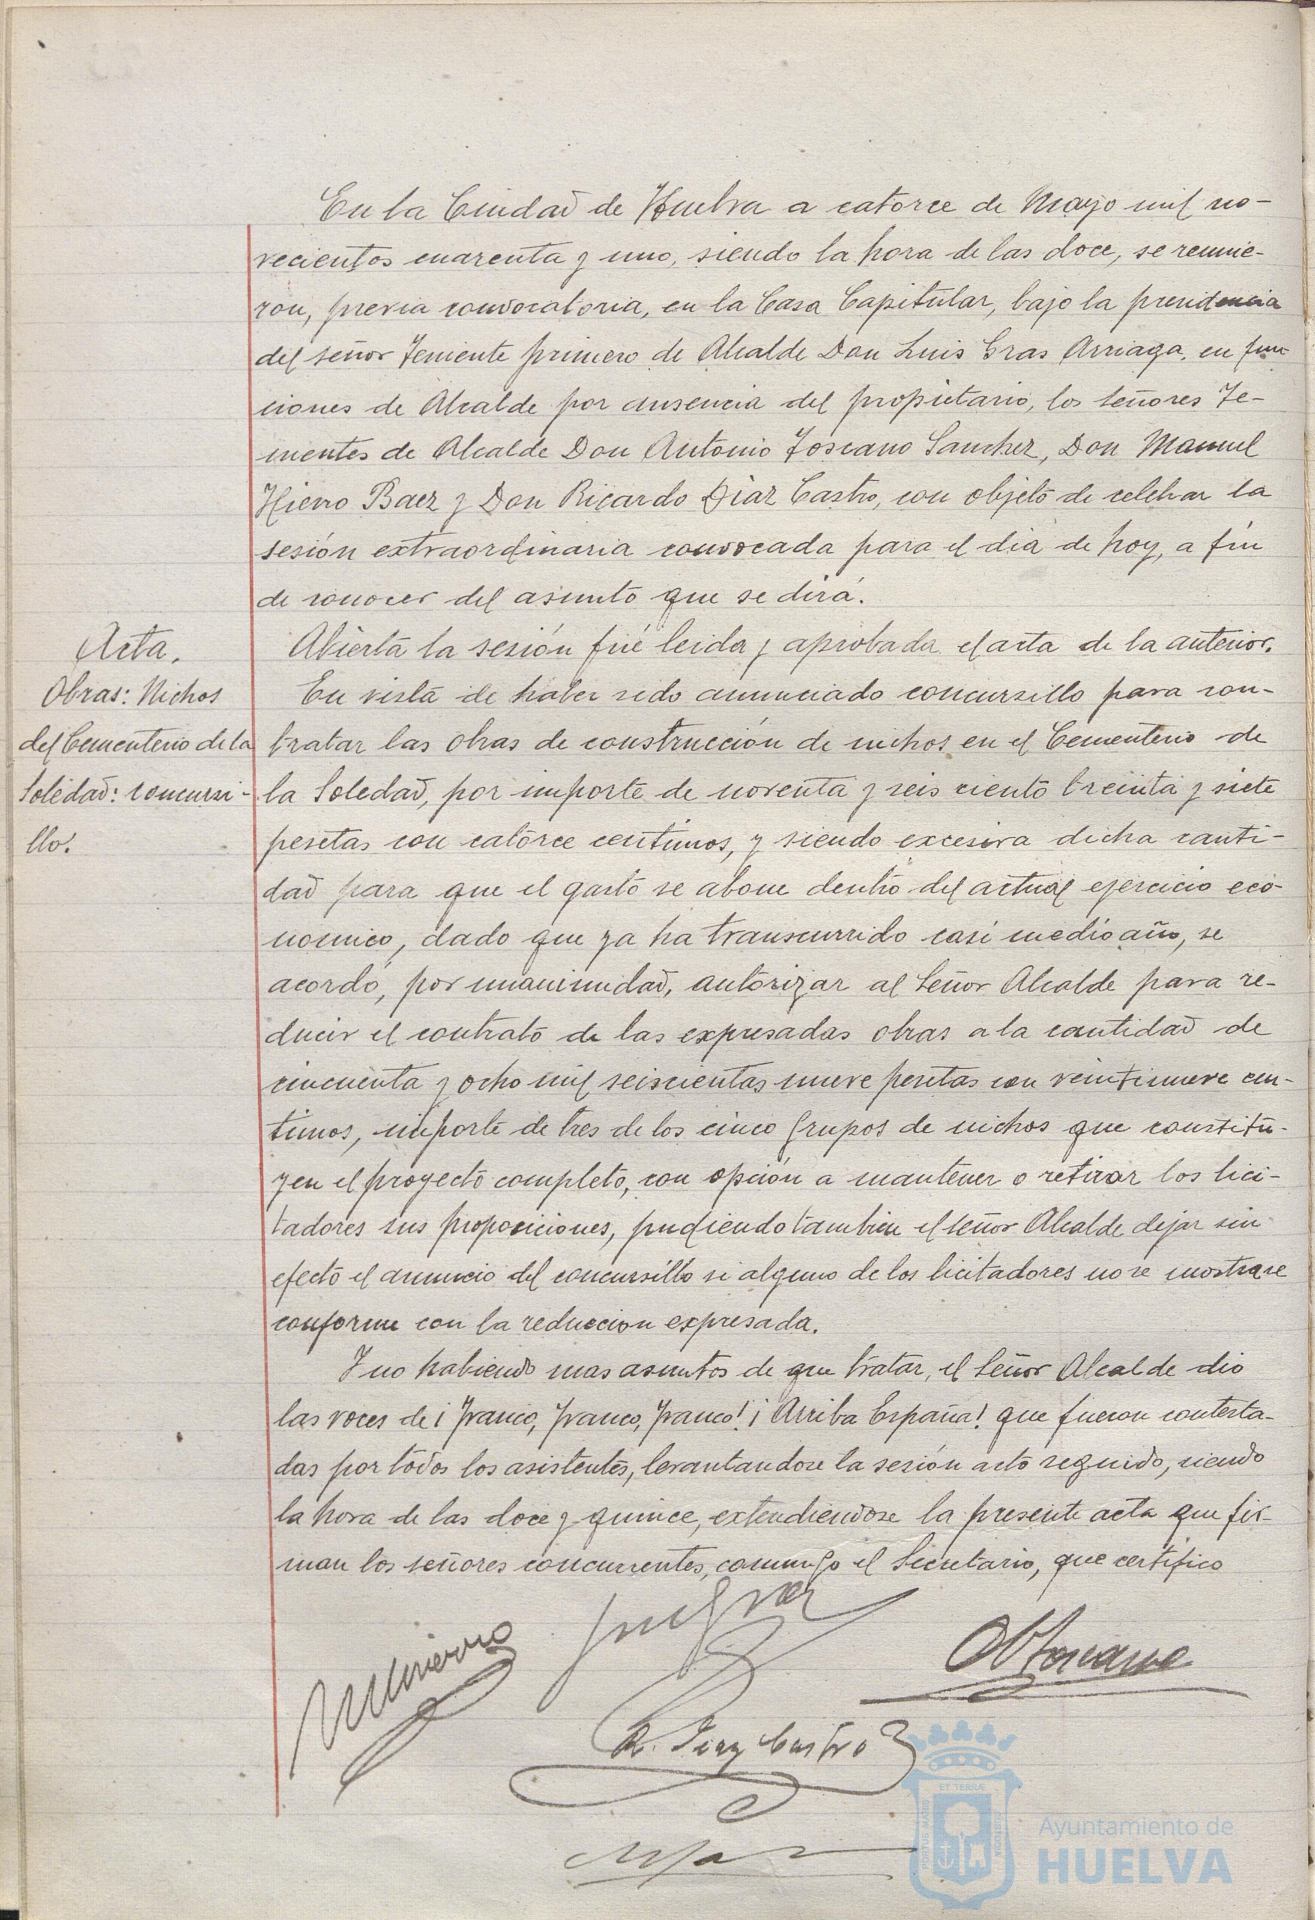 En la Ciudad de Huelva a catorce de Mayo mil no-
vecientos cuarenta y uno, siendo la hora de las doce, se reunie-
ron, previa convocatoria, en la Casa Capitular, bajo la presidencia
del señor Teniente primero de Alcalde Don Luis Gras Arriaga, en fun-
ciones de Alcalde por ausencia del propietario, los señores Te-
nientes de Alcalde Don Antonio Toscano Sanchez, Don Manuel
Hierro Baez y Don Ricardo Diaz Castro, con objeto de celebrar la
sesión extraordinaria convocada para el dia de hoy, a fin
de conocer del asunto que se dirá.
Acta.
Abierta la sesión fué leida y aprobada el acta de la anterior.
Obras: Nichos
del Cementerio de la
Soledad: concursi-
llo.
En vista de haber sido anunciado concursillo para con-
tratar las obras de construcción de nichos en el Cementerio de
la Soledad, por importe de noventa y seis ciento treinta y siete
pesetas con catorce centimos, y siendo excesiva dicha canti-
dad para que el gasto se abone dentro del actual ejercicio eco-
nomico, dado que ya ha transcurrido casi medio año, se
acordó, por unanimidad, autorizar al Señor Alcalde para re-
ducir el contrato de las expresadas obras a la cantidad de
cincuenta y ocho mil seiscientas nueve pesetas con veintinueve cen-
timos, importe de tres de los cinco grupos de nichos que constitu-
yen el proyecto completo, con opción a mantener o retirar los lici-
tadores sus proposiciones, pudiendo tambien el señor Alcalde dejar sin
efecto el anuncio del concursillo si alguno de los licitadores no se mostrase
conforme con la reduccion expresada.
Y no habiendo mas asuntos de que tratar, el Señor Alcalde dio
las voces de ¡Franco, Franco, Franco! ¡Arriba España! que fueron contesta-
das por todos los asistentes, levantandose la sesión acto seguido, siendo
la hora de las doce y quince, extendiendose la presente acta que fir-
man los señores concurrentes, conmigo el Secretario, que certifico
M Hierro
Luis Gras
A Toscano
R. Diaz Castro
PORTUS MARIS
ET TERRAE
CUSTODIA
Ayuntamiento de
HUELVA